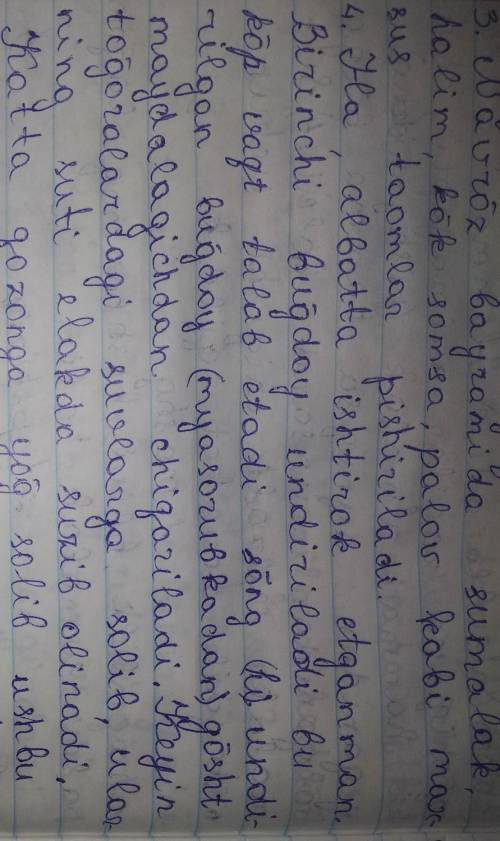 3. Navrõz bayramida sumalak,
halim, kõk somsa, palov kabi max-
sus taomlar pishiriladi.
4. Ha, albatta ishtirok etganman.
Birinchi buğdoy undiriladi bu
kõp vaqt talab etadi sõng (bi) undi-
rilgan buğdoy (myasorubkadan) gõsht
maydalagichdan chiqariladi. Keyin
toğoralardagi suvlarga solib, ular-
ning suti elakda suzib olinadi,
Katta qozonga yoğ solib ushbu